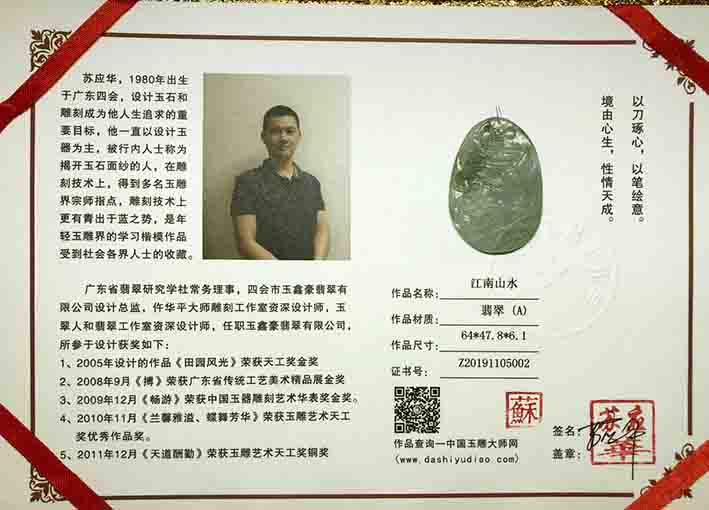 苏应华，1980年出生
于广东四会，设计玉石和
雕刻成为他人生追求的重
要目标，他一直以设计玉
器为主，被行内人士称为
揭开玉石面纱的人，在雕
刻技术上，得到多名玉雕
界宗师指点，雕刻技术上
更有青出于蓝之势，是年
轻玉雕界的学习楷模作品
受到社会各界人士的收藏。
广东省翡翠研究学社常务理事，四会市玉鑫豪翡翠有
限公司设计总监、仵华平大师雕刻工作室资深设计师，玉
翠人和翡翠工作室资深设计师，任职玉鑫豪翡翠有限公司，
所参于设计获奖如下：
1、2005年设计的作品《田园风光》荣获天工奖金奖
2、2008年9月《搏》荣获广东省传统工艺美术精品展金奖。
3、2009年12月《畅游》荣获中国玉器雕刻艺术华表奖金奖。
4、2010年11月《兰馨雅溢、蝶舞芳华》荣获玉雕艺术天工
奖优秀作品奖。
5、2011年12月《天道酬勤》荣获玉雕艺术天工奖铜奖
以刀琢心，以笔绘意。
境由心生，性情天成。
作品名称：江南山水
作品材质：翡翠（A）
作品尺寸：64*47.8*6.1
证书号：Z20191105002
作品查询—中国玉雕大师网
（www.dashiyudiao.com）
蘇
签名：
盖章：
苏应华